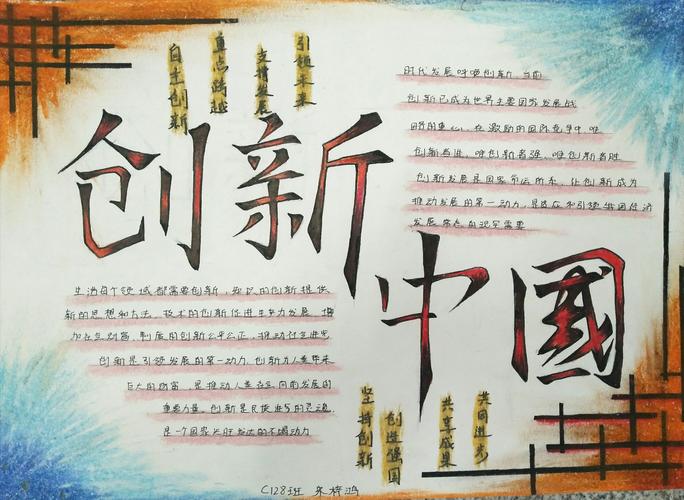 自主创新
重点跨越
支撑发展
引领未来
创新
时代发展呼唤创新,当前
创新已成为世界主要国家发展战
略的重心。在激励的国际竞争中,唯
创新者进,唯创新者强,唯创新者胜
创新发展是国家命运所系。让创新成为
推动发展的第一动力,是适应和引领我国经济
发展常态的现实需要
中國
生活每个领域都需要创新,知识的创新提供
新的思想和方法,技术的创新促进生产力发展,增
加社会财富,制度的创新公平公正,推动社会进步
创新是引领发展的第一动力,创新为人类带来
巨大的财富,是推动人类社会向前发展的
重要力量。创新是民族进步的灵魂,
是一个国家兴旺发达的不竭动力
坚持创新
创造强国
共享成果
共同进步
C128班 朱梓鸿